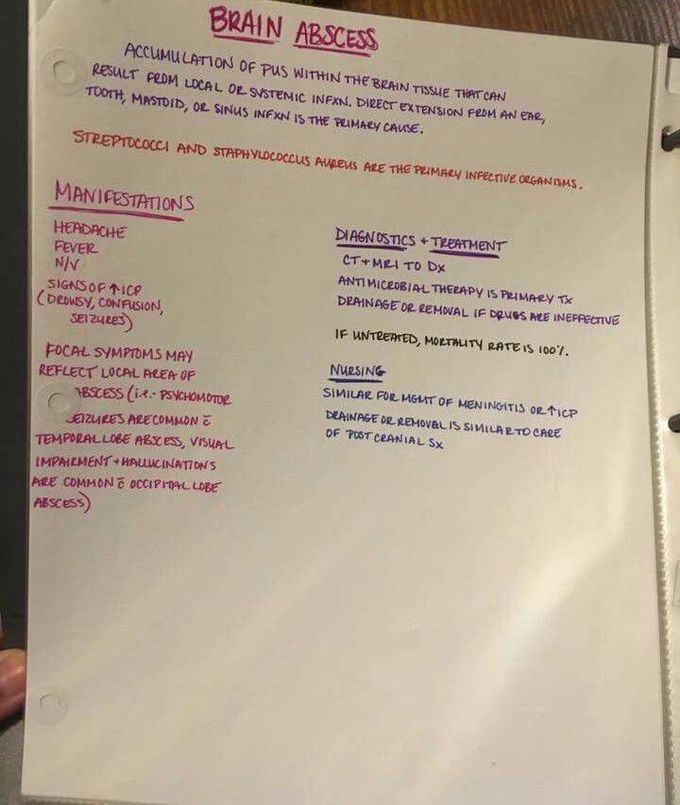 BRAIN ABSCESS
ACCUMULATION OF PUS WITHIN THE BRAIN TISSUE THAT CAN
RESULT FROM LOCAL OR SYSTEMIC INFXN. DIRECT EXTENSION FROM AN EAR,
TOOTH, MASTOID, OR SINUS INFXN IS THE PRIMARY CAUSE.
STREPTOCOCCI AND STAPHYLOCOCCUS AUREUS ARE THE PRIMARY INFECTIVE ORGANISMS.
MANIFESTATIONS
HEADACHE
FEVER
N/V
SIGNS OF ↑ICP
(DROWSY, CONFUSION,
SEIZURES)
FOCAL SYMPTOMS MAY
REFLECT LOCAL AREA OF
ABSCESS (i.e.- PSYCHOMOTOR
SEIZURES ARE COMMON c̄
TEMPORAL LOBE ABSCESS, VISUAL
IMPAIRMENT + HALLUCINATIONS
ARE COMMON c̄ OCCIPITAL LOBE
ABSCESS)
DIAGNOSTICS + TREATMENT
CT + MRI TO DX
ANTIMICROBIAL THERAPY IS PRIMARY TX
DRAINAGE OR REMOVAL IF DRUGS ARE INEFFECTIVE
IF UNTREATED, MORTALITY RATE IS 100%.
NURSING
SIMILAR FOR MGMT OF MENINGITIS OR ↑ICP
DRAINAGE OR REMOVAL IS SIMILAR TO CARE
OF POST CRANIAL SX